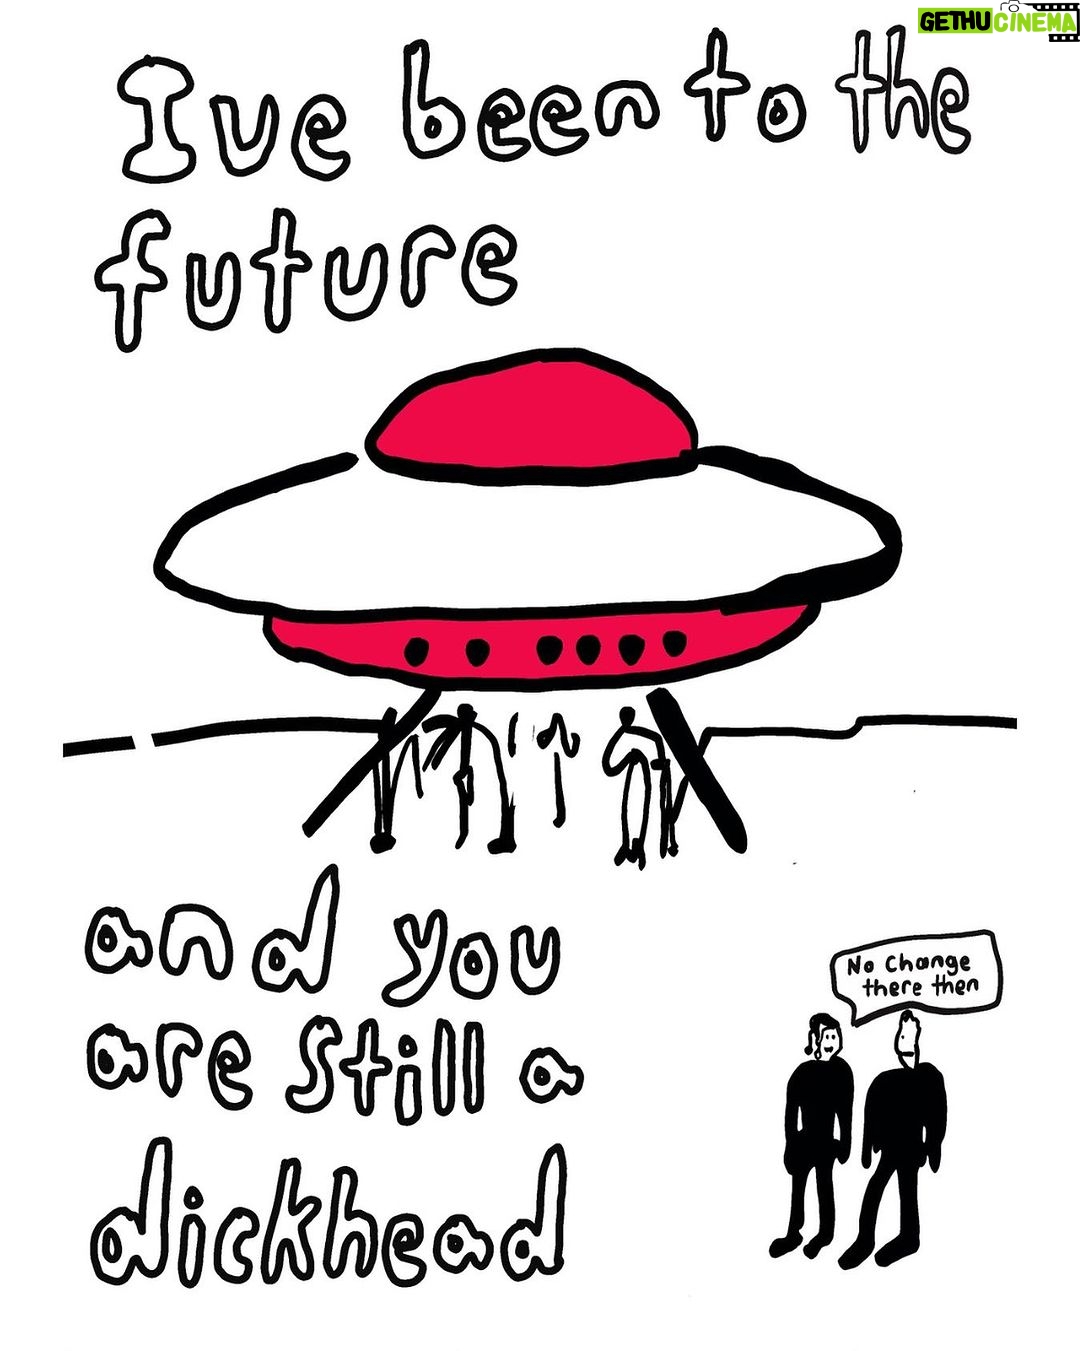 GETHUCINEMA
Ive been to the
future
and you
are still a
dickhead
No Change
there then